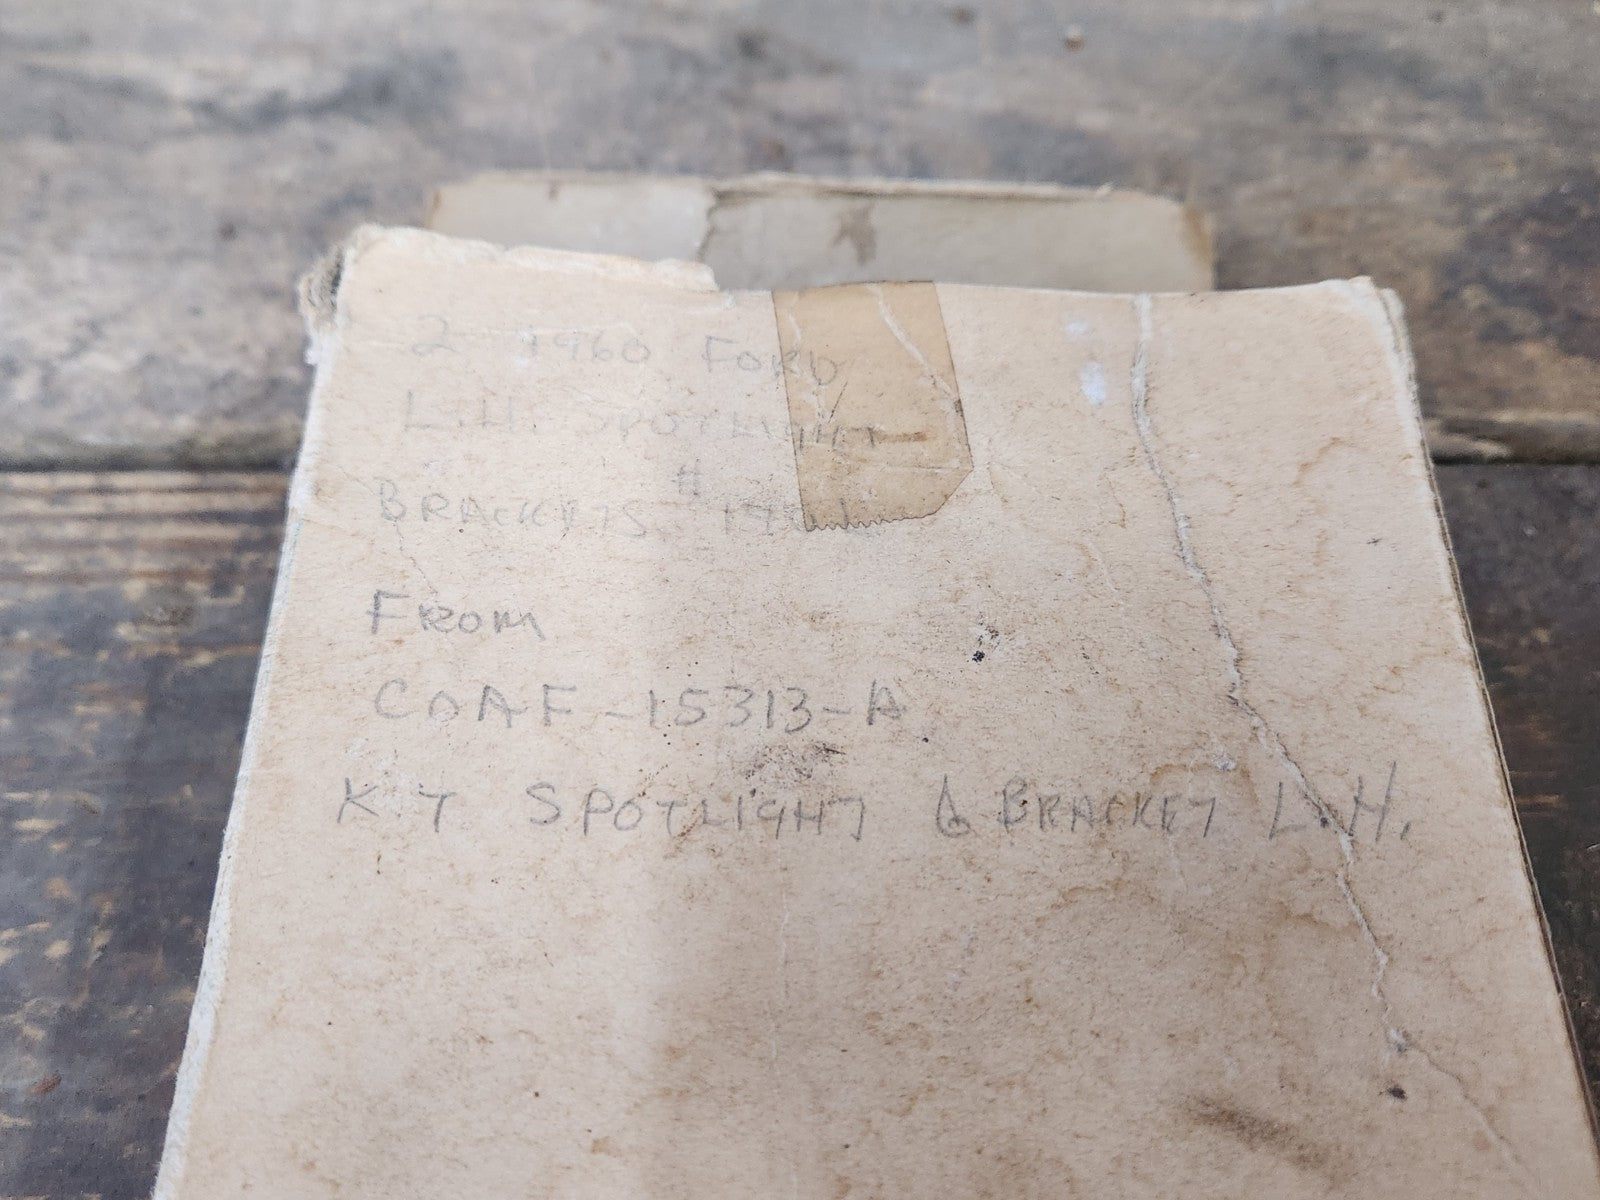 2 1960 FORD
L.H. SPOTLIGHT
BRACKETS #
FROM
COAF-15313-A
KIT SPOTLIGHT & BRACKET L.H.